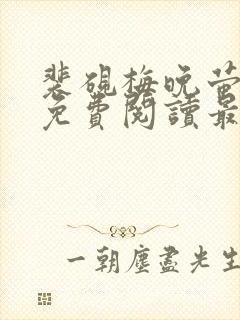 裴硯梅晚萤
免費閱讀最
一朝塵盡光生